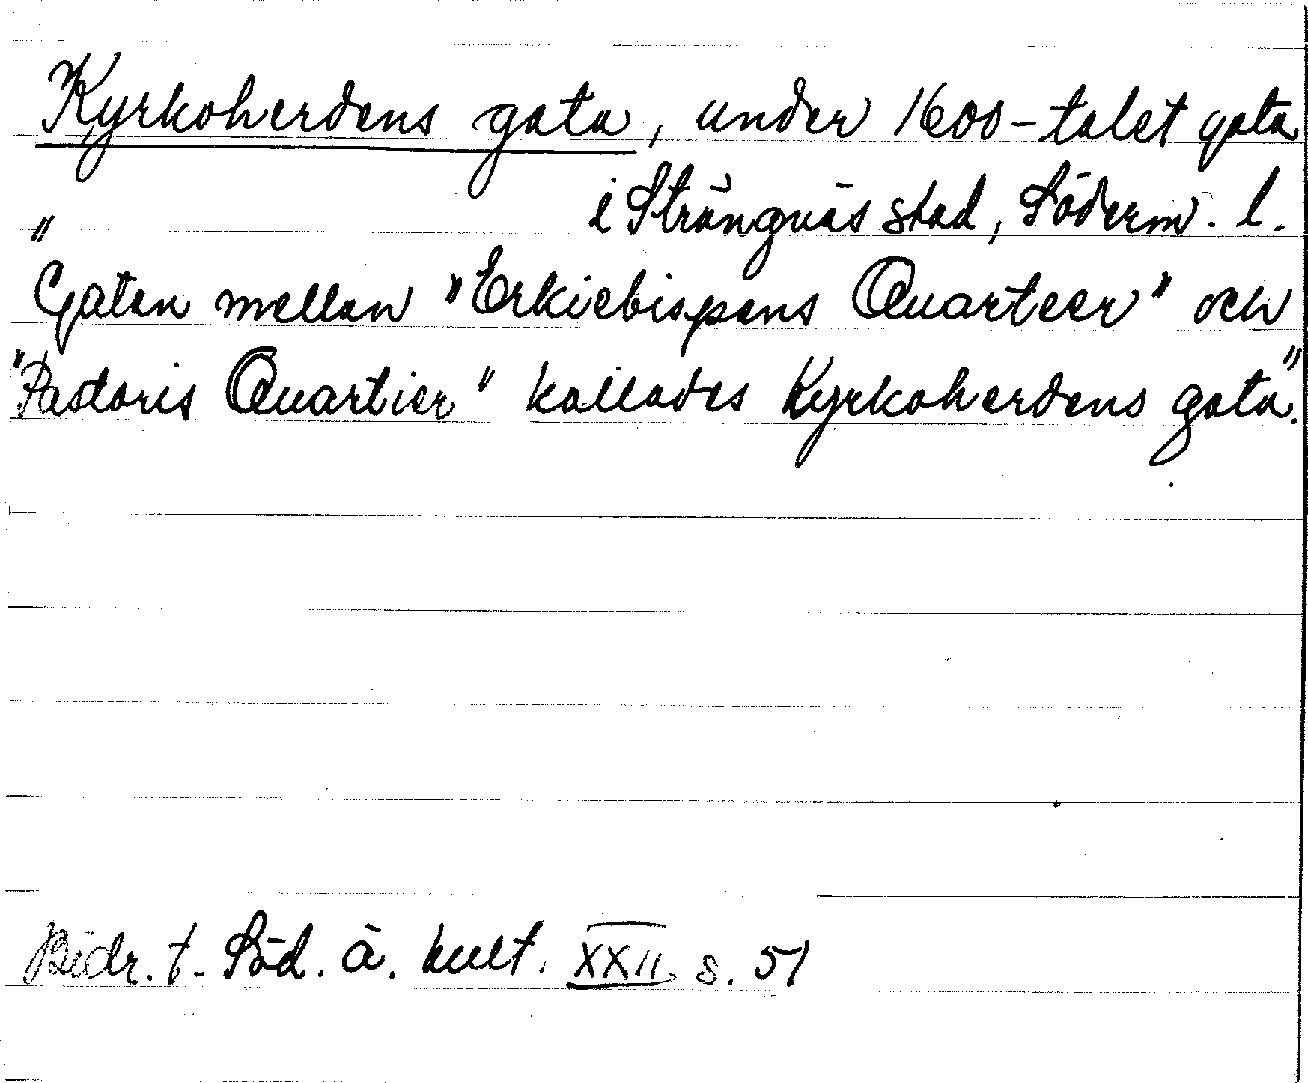 Kyrkoherdens gata, under 1600-talet gata
i Strängnäs stad, Söderm. l.
"Gatan mellan "Erkiebispens Quarteer" och
"Pastoris Quartier" kallades Kyrkoherdens gata".
Bidr. t. Söd. ä. kult. XXII s. 51